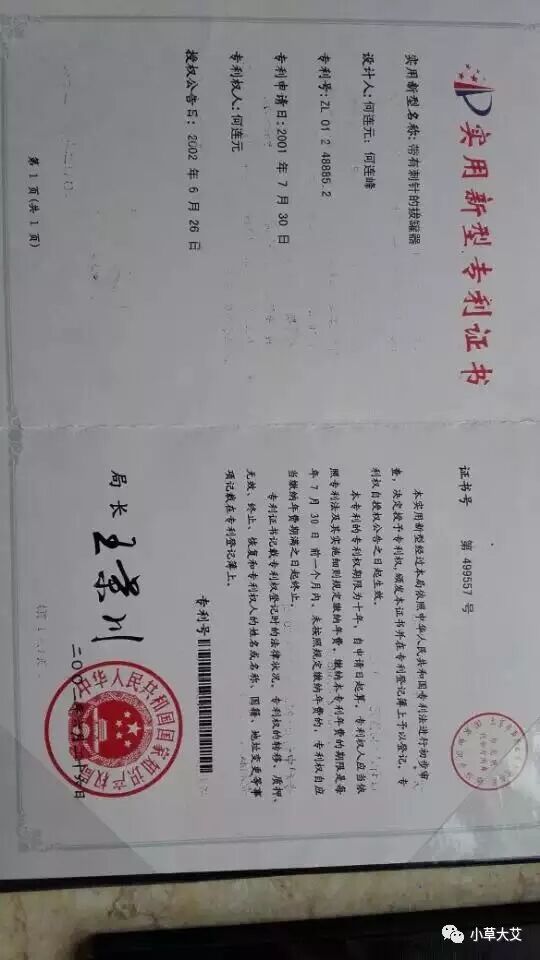 实用新型专利证书
实用新型名称:带有刺针的拔罐器
设计人:何连元;何连峰
专利号:ZL 01 2 48885.2
专利申请日:2001 年 7 月 30 日
专利权人:何连元
授权公告日:2002 年 6 月 26 日
第 1 页(共 1 页)
证书号 第 499557 号
本实用新型经过本局依照中华人民共和国专利法进行初步审
查,决定授予专利权,颁发本证书并在专利登记簿上予以登记。专
利权自授权公告之日起生效。
本专利的专利权期限为十年,自申请日起算。专利权人应当依
照专利法及其实施细则规定缴纳年费。缴纳本专利年费的期限是每
年 7 月 30 日 前一个月内。未按照规定缴纳年费的,专利权自应
当缴纳年费期满之日起终止。
专利证书记载专利权登记时的法律状况。专利权的转移、质押、
无效、终止、恢复和专利权人的姓名或名称、国籍、地址变更等事
项记载在专利登记簿上。
专利号
局长 王景川
中华人民共和国国家知识产权局
小草大艾